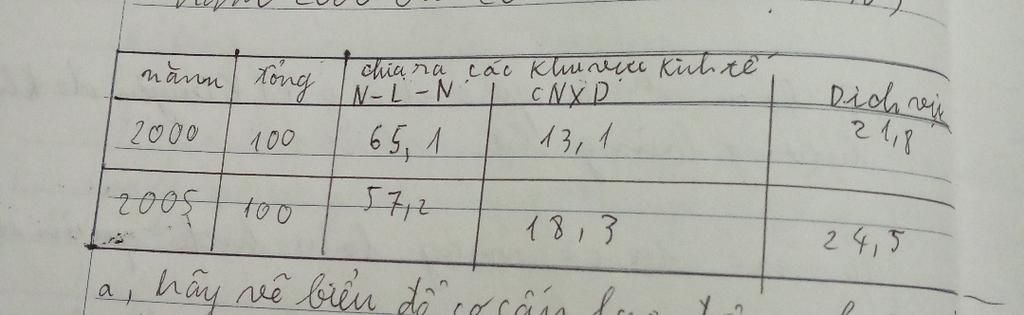 năm tổng chia ra các khu vực kinh tế
N-L-N CNXD Dịch vụ
2000 100 65,1 13,1 21,8
2005 100 57,2 18,3 24,5
a, hãy vẽ biểu đồ cơ cấu lao